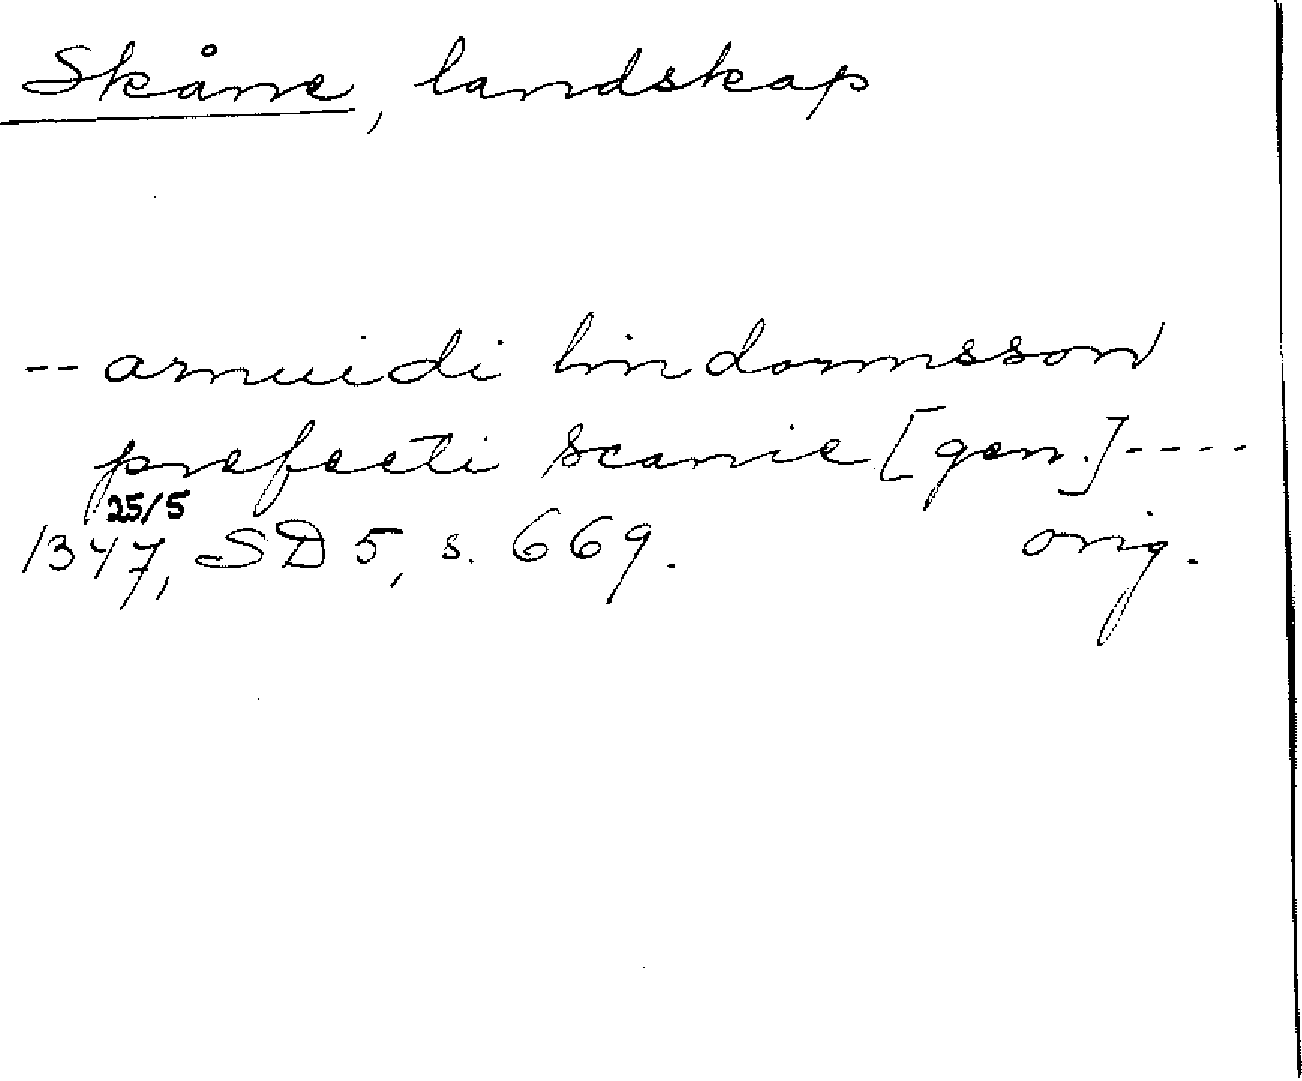 Skåne, landskap
-- arnuidi lindormsson
prefecti scanie [gen.] ----
25/5
1347, SD 5, s. 669. orig.